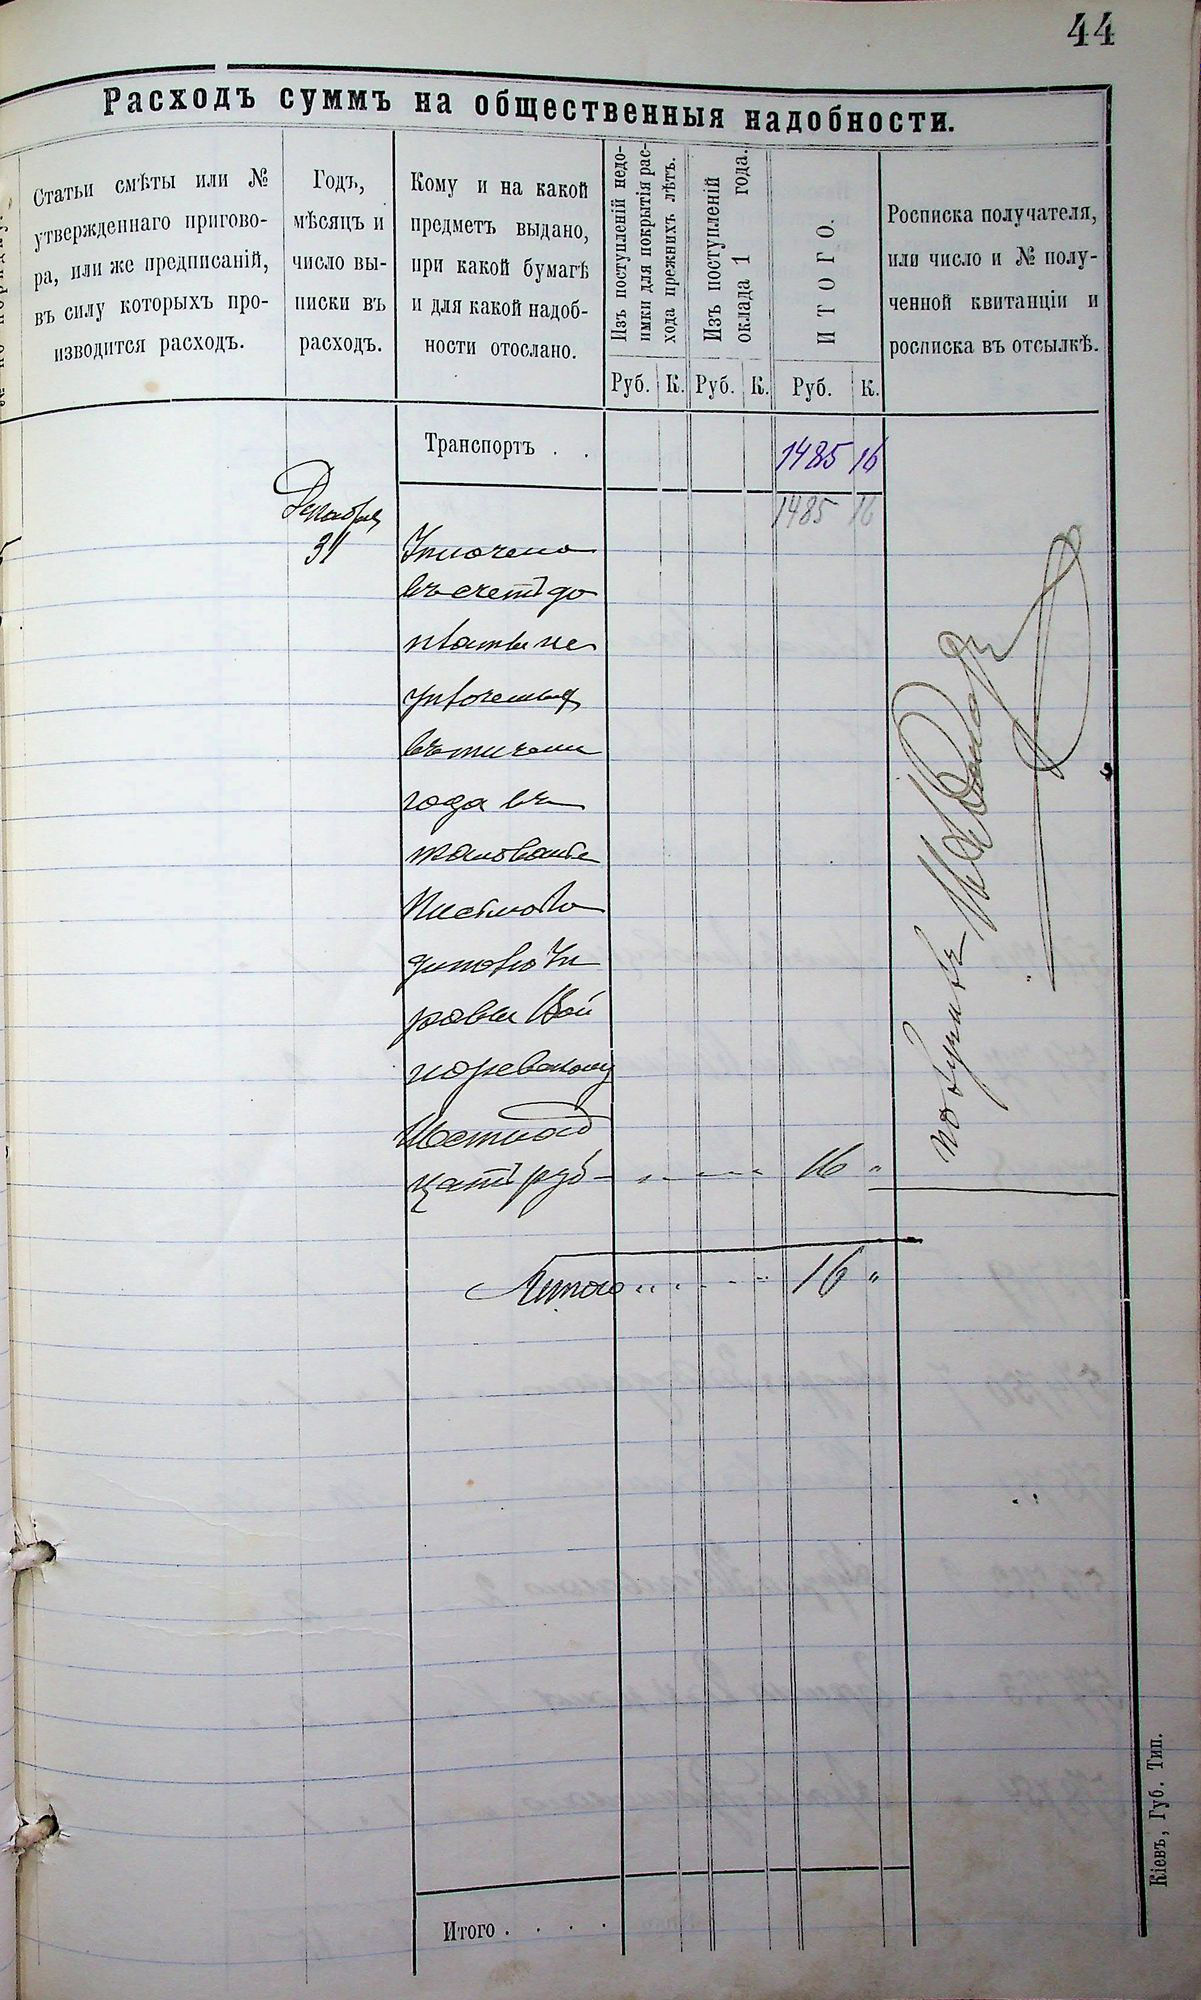 44
Расходъ суммъ на общественныя надобности.
Статьи смѣты или №
утвержденнаго пригово-
ра, или же предписаній,
въ силу которыхъ про-
изводится расходъ.
Годъ,
мѣсяцъ и
число вы-
писки въ
расходъ.
Кому и на какой
предметъ выдано,
при какой бумагѣ
и для какой надоб-
ности отослано.
Изъ поступленій недо-
имки для покрытія рас-
хода прежнихъ лѣтъ.
Изъ поступленій
оклада 1 года.
ИТОГО.
Росписка получателя,
или число и № полу-
ченной квитанціи и
росписка въ отсылкѣ.
Руб. К. Руб. К. Руб. К.
Транспортъ . . 1485 16
1485 16
Декабря
31
Уплочено
въ счетъ до
платы не
уплоченных
въ течени
года въ
жалованье
Писмово
рублей
Шестнад
цать руб 16 "
Итого 16 "
получилъ
Итого . . . .
Кіевъ, Губ. Тип.